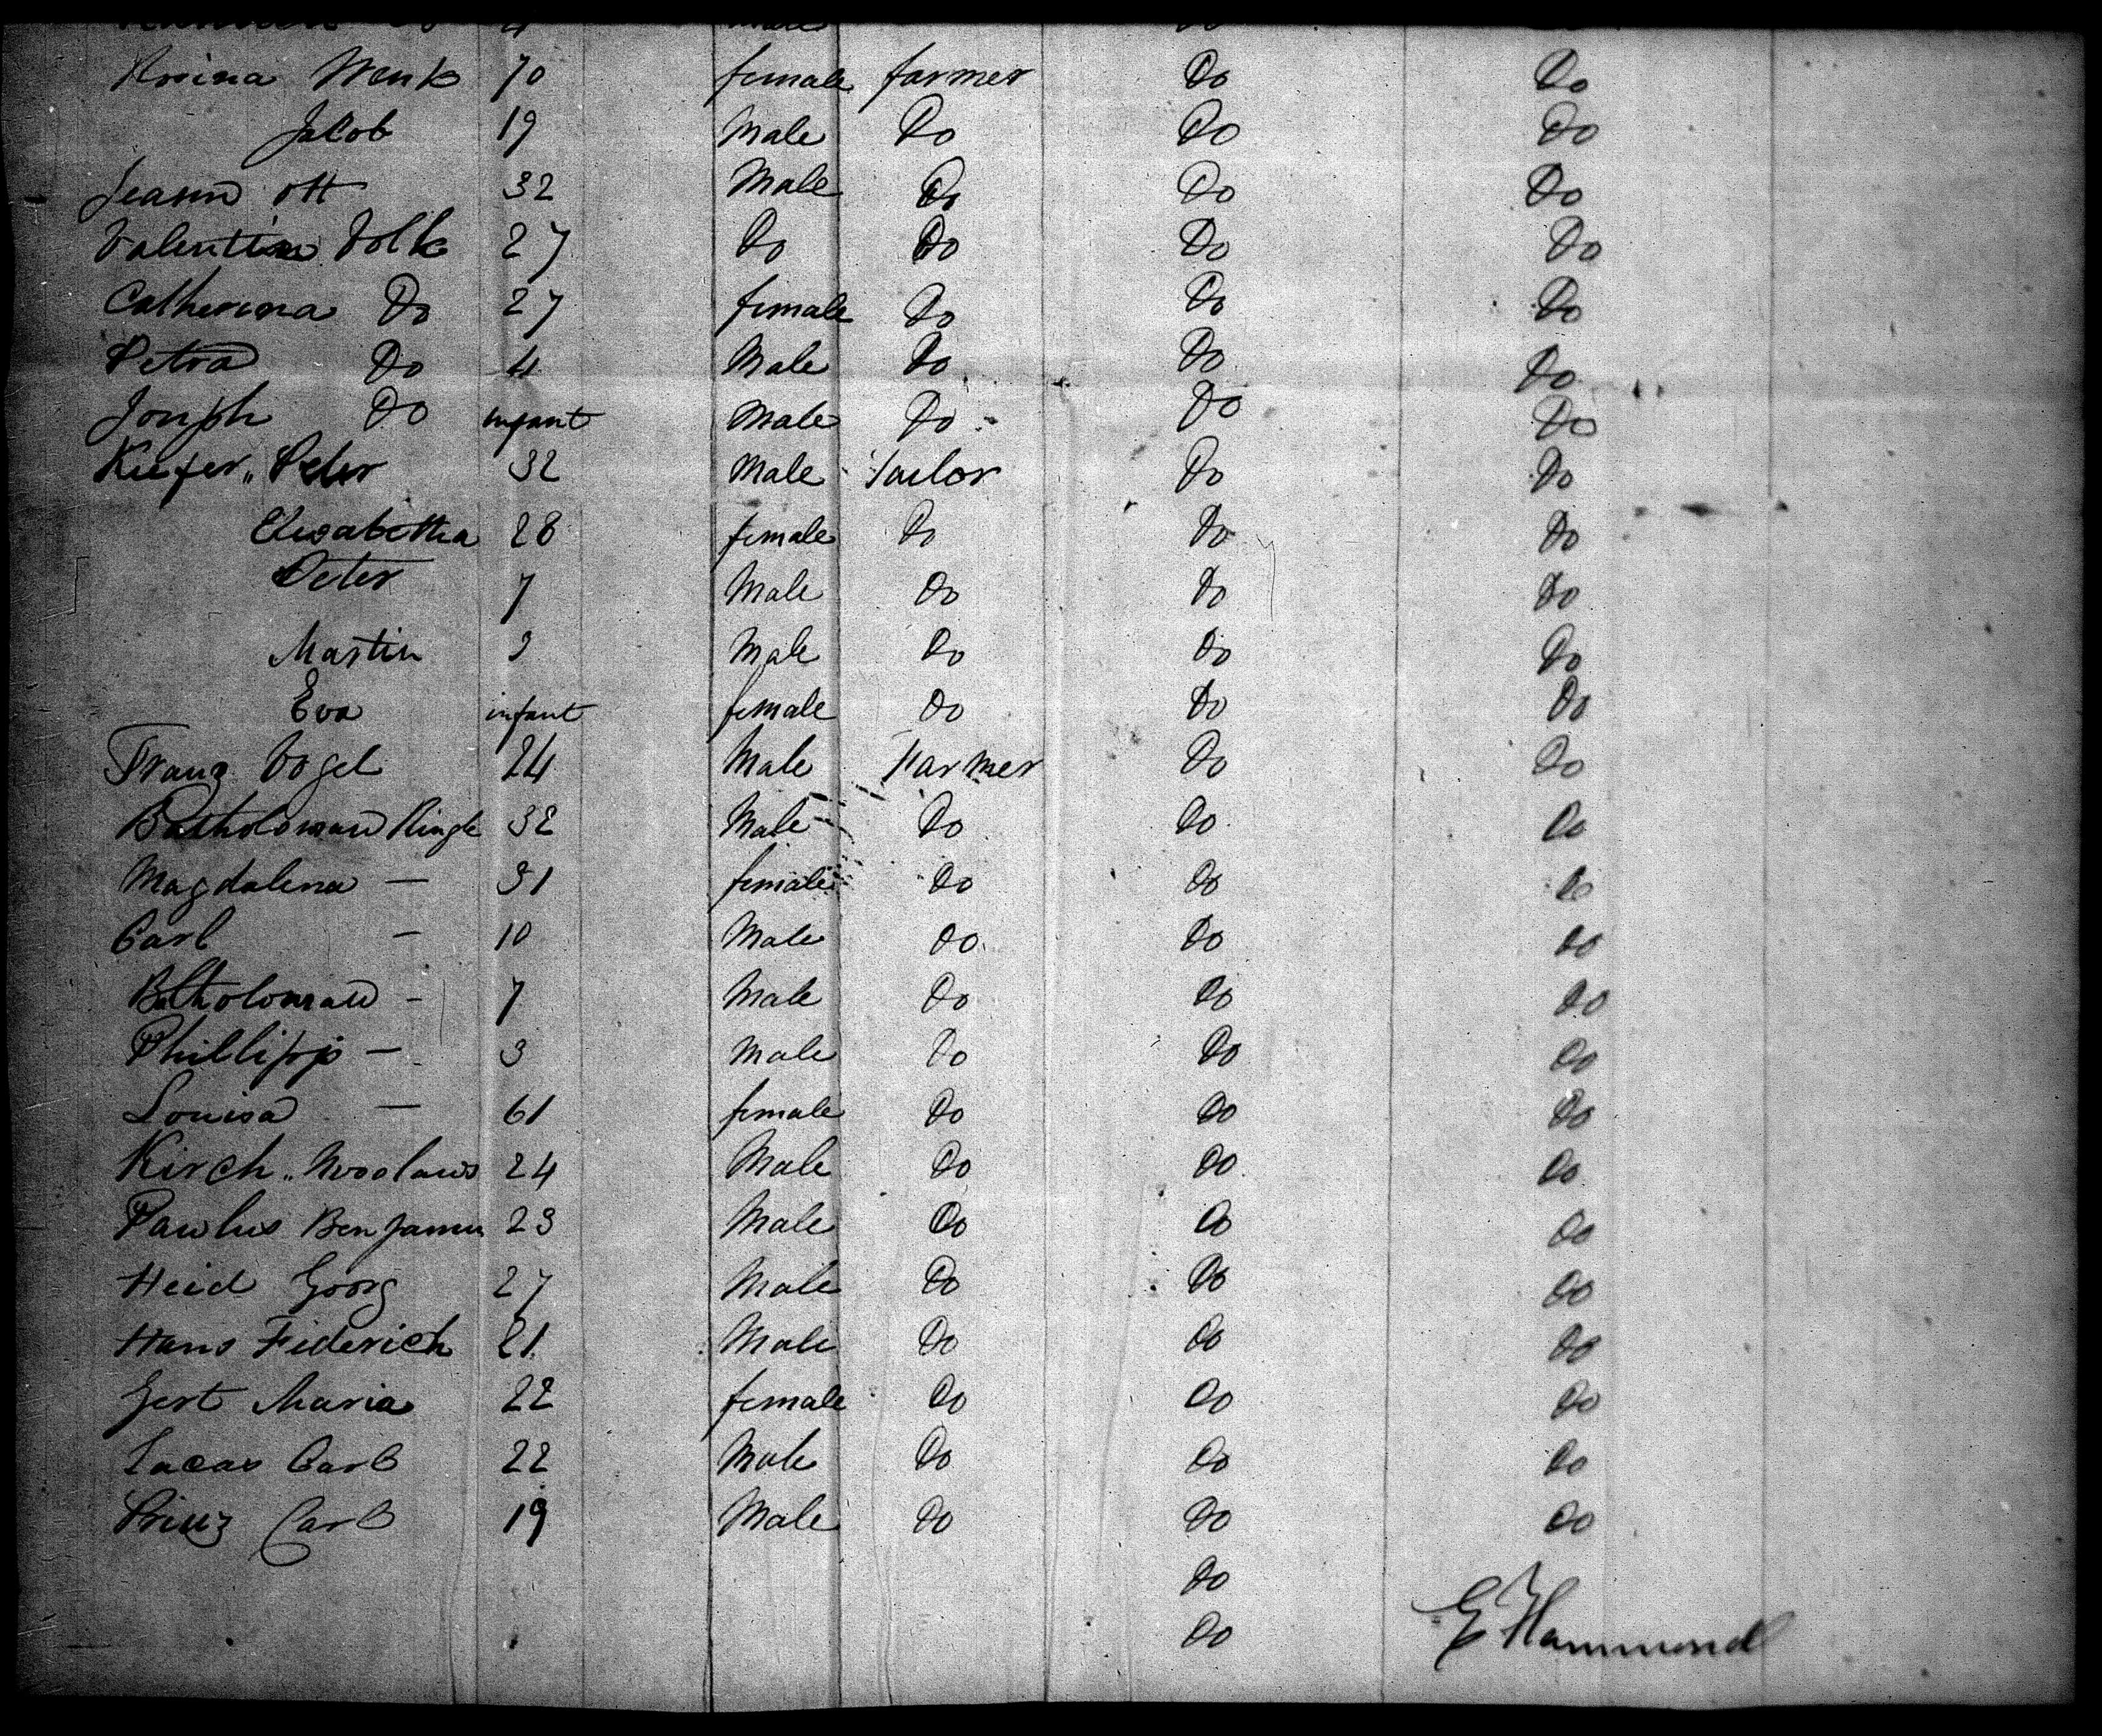 Rosina Wenk 70 female farmer Do Do
Jacob 19 Male Do Do Do
Jeann Ott 32 Male Do Do Do
Valentin Volk 27 Do Do Do Do
Catherina Do 27 female Do Do Do
Petra Do 4 Male Do Do Do
Joseph Do infant Male Do Do Do
Kiefer,, Peter 32 Male Tailor Do Do
Elisabetha 28 female Do Do Do
Peter 7 Male Do Do Do
Martin 3 Male Do Do Do
Eva infant female Do Do Do
Franz Vogel 24 Male Farmer Do Do
Bartholomau Ringle 32 Male Do Do Do
Magdalena — 31 female Do Do Do
Carl — 10 Male Do Do Do
Batholomau - 7 Male Do Do Do
Phillipp — 3 Male Do Do Do
Louisa — 61 female Do Do Do
Kirch,, 24 Male Do Do Do
Paulus Benjamin 23 Male Do Do Do
Heid Georg 27 Male Do Do Do
Hans Fiderich 21 Male Do Do Do
Gert Maria 22 female Do Do Do
Lucas Carl 22 Male Do Do Do
Prinz Carl 19 Male Do Do Do
Do
Do
E Hammond